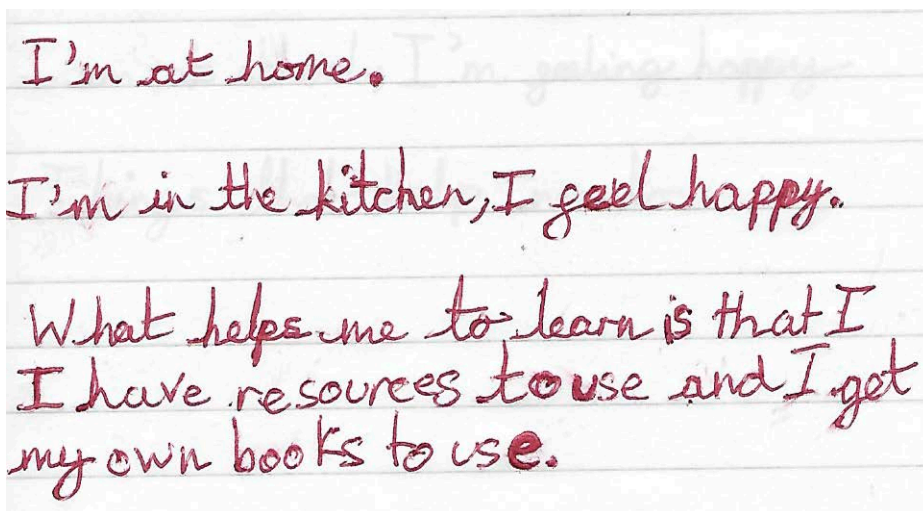 I'm at home.
I'm in the kitchen, I feel happy.
What helps me to learn is that I
I have resources to use and I get
my own books to use.